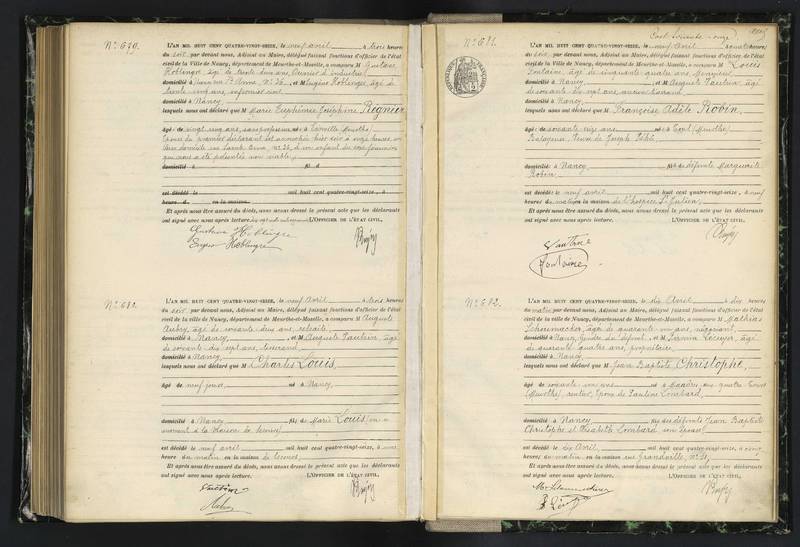 N° 679.
L'AN MIL HUIT CENT QUATRE-VINGT-SEIZE, le neuf avril à trois heures
du soir par devant nous, Adjoint au Maire, délégué faisant fonctions d'Officier de l'état
civil de la Ville de Nancy, département de Meurthe-et-Moselle, a comparu M Gustave
Hoblingre, âgé de trente deux ans,
domicilié à Nancy, rue Ste Anne, N° 26, et M Eugène Hoblingre, âgé de
trente cinq ans,
domicilié à Nancy
lesquels nous ont déclaré que M Marie Euphémie Joséphine Regnier
âgé de vingt cinq ans, sans profession né à Lainville (Meurthe)
Epouse du premier déclarant est accouchée hier soir à onze heures, en
leur domicile rue Sainte Anne N° 26, d'un enfant du sexe féminin
qui nous a été présenté non viable
domicilié à fils d
est décédé le mil huit cent quatre-vingt-seize, à
heures d en la maison
Et après nous être assuré du décès, nous avons dressé le présent acte que les déclarants
ont signé avec nous après lecture. L'OFFICIER DE L'ÉTAT CIVIL,
Gustave Hoblingre
Eugène Hoblingre
N° 680.
L'AN MIL HUIT CENT QUATRE-VINGT-SEIZE, le neuf Avril à trois heures
du soir par devant nous, Adjoint au Maire, délégué faisant fonctions d'Officier de l'état
civil de la Ville de Nancy, département de Meurthe-et-Moselle, a comparu M Auguste
Aubry, âgé de soixante deux ans, retraité
domicilié à Nancy, et M Auguste Vautrin, âgé
de soixante dix sept ans, tisserand
domicilié à Nancy
lesquels nous ont déclaré que M Charles Louis,
âgé de neuf jours né à Nancy,
domicilié à Nancy fils de Marie Louis (en ce
moment à la Maison de Secours)
est décédé le neuf avril mil huit cent quatre-vingt-seize, à une
heure du matin en la maison de Secours
Et après nous être assuré du décès, nous avons dressé le présent acte que les déclarants
ont signé avec nous après lecture. L'OFFICIER DE L'ÉTAT CIVIL,
Vautrin
Aubry
Cent soixante onze
N° 681.
L'AN MIL HUIT CENT QUATRE-VINGT-SEIZE, le neuf Avril à quatre heures
du soir par devant nous, Adjoint au Maire, délégué faisant fonctions d'Officier de l'état
civil de la Ville de Nancy, département de Meurthe-et-Moselle, a comparu M Louis
Fontaine, âgé de cinquante quatre ans,
domicilié à Nancy et M Auguste Vautrin, âgé
de soixante dix sept ans, ancien tisserand
domicilié à Nancy
lesquels nous ont déclaré que M Françoise Adèle Robin,
âgé de soixante seize ans né à Toul (Meurthe)
Veuve de Joseph
domicilié à Nancy fils de défunte Marguerite
Robin
est décédé le neuf avril mil huit cent quatre-vingt-seize, à neuf
heures du matin en la maison de l'hospice St Julien,
Et après nous être assuré du décès, nous avons dressé le présent acte que les déclarants
ont signé avec nous après lecture. L'OFFICIER DE L'ÉTAT CIVIL,
Vautrin
Fontaine
N° 682.
L'AN MIL HUIT CENT QUATRE-VINGT-SEIZE, le dix Avril à dix heures
du matin par devant nous, Adjoint au Maire, délégué faisant fonctions d'Officier de l'état
civil de la Ville de Nancy, département de Meurthe-et-Moselle, a comparu M Mathias
Schoumacher, âgé de quarante un ans, négociant
domicilié à Nancy, Gendre du défunt et M
de quarante quatre ans, propriétaire
domicilié à Nancy
lesquels nous ont déclaré que M Jean Baptiste Christophe,
âgé de soixante ans né à Mandres aux quatre Tours
(Meurthe), rentier, Epoux de Pauline Lombard
domicilié à Nancy fils des défunts Jean Baptiste
Christophe et Elisabeth Lombard son épouse
est décédé le dix Avril mil huit cent quatre-vingt-seize, à
heures du matin en la maison rue Grandville, N°
Et après nous être assuré du décès, nous avons dressé le présent acte que les déclarants
ont signé avec nous après lecture. L'OFFICIER DE L'ÉTAT CIVIL,
M. Schoumacher